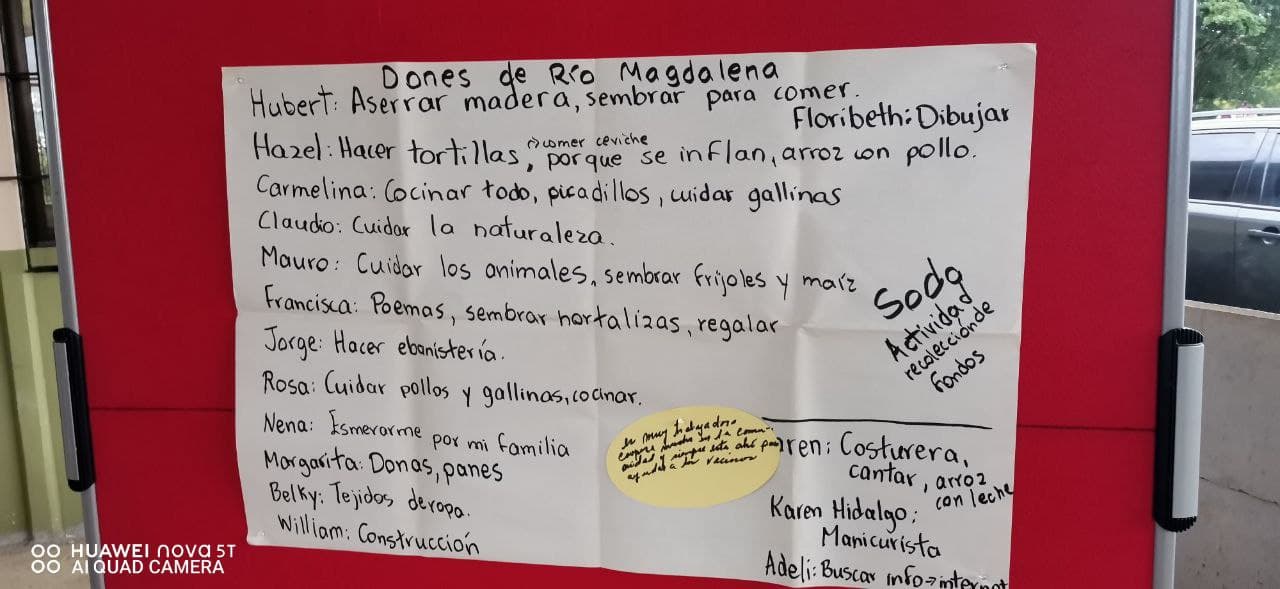 Dones de Río Magdalena
Hubert: Aserrar madera, sembrar para comer.
Floribeth: Dibujar
comer ceviche
Hazel: Hacer tortillas, porque se inflan, arroz con pollo.
Carmelina: Cocinar todo, picadillos, cuidar gallinas
Claudio: Cuidar la naturaleza.
Mauro: Cuidar los animales, sembrar frijoles y maíz
Francisca: Poemas, sembrar hortalizas, regalar
Jorge: Hacer ebanistería.
Rosa: Cuidar pollos y gallinas, cocinar.
Nena: Esmerarme por mi familia
Margarita: Donas, panes
Belky: Tejidos de ropa.
William: Construcción
Soda
Actividad
recolección de
fondos
muy
siempre está ahí para
ayudar a los vecinos
ren: Costurera,
cantar, arroz
con leche
Karen Hidalgo:
Manicurista
Adeli: Buscar info→internet
HUAWEI nova 5T
AI QUAD CAMERA